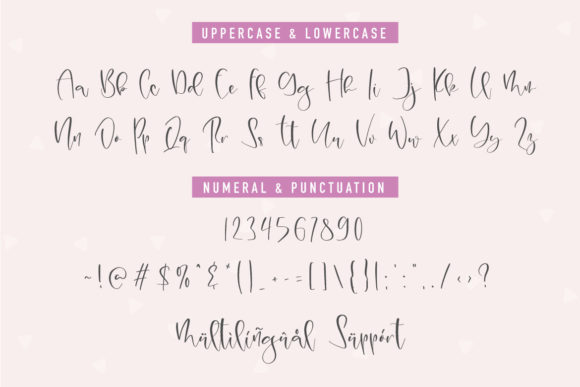 UPPERCASE & LOWERCASE
Aa Bb Cc Dd Ee Ff Gg Hh Ii Jj Kk Ll Mm
Nn Oo Pp Qq Rr Ss Tt Uu Vv Ww Xx Yy Zz
NUMERAL & PUNCTUATION
1234567890
~!@#$%^&*()_+-=[]\{}|;':",./<>?
Mültilíñgûål Süppórt